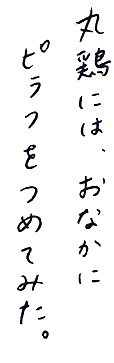 丸鶏には、おなかに
ピラフをつめてみた。